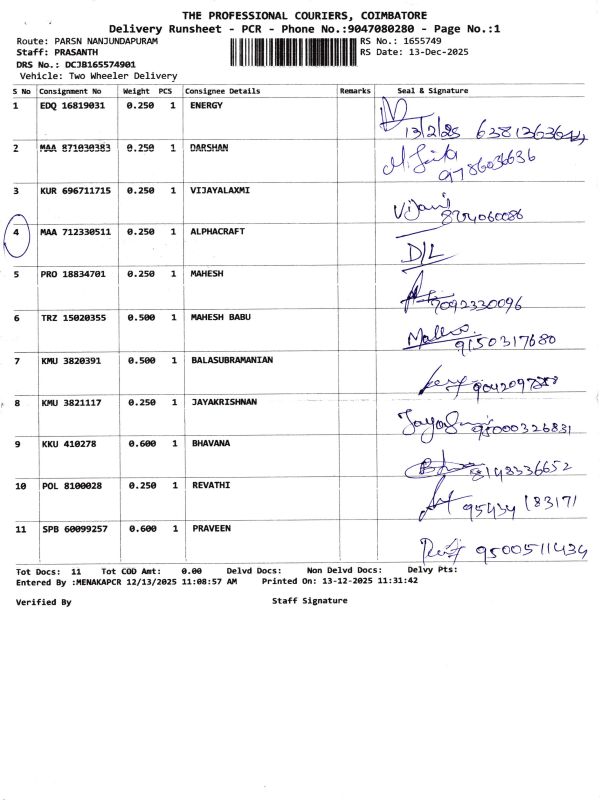 THE PROFESSIONAL COURIERS, COIMBATORE
Delivery Runsheet - PCR - Phone No.:9047080280 - Page No.:1
Route: PARSN NANJUNDAPURAM RS No.: 1655749
Staff: PRASANTH RS Date: 13-Dec-2025
DRS No.: DCJB165574901
Vehicle: Two Wheeler Delivery
S No Consignment No Weight PCS Consignee Details Remarks Seal & Signature
1 EDQ 16819031 0.250 1 ENERGY
13/2/25
2 MAA 871030383 0.250 1 DARSHAN
9786036636
3 KUR 696711715 0.250 1 VIJAYALAXMI
4 MAA 712330511 0.250 1 ALPHACRAFT
D/L
5 PRO 18834701 0.250 1 MAHESH
7092330096
6 TRZ 15020355 0.500 1 MAHESH BABU
9150317680
7 KMU 3820391 0.500 1 BALASUBRAMANIAN
8 KMU 3821117 0.250 1 JAYAKRISHNAN
9 KKU 410278 0.600 1 BHAVANA
8148336652
10 POL 8100028 0.250 1 REVATHI
11 SPB 60099257 0.600 1 PRAVEEN
9500511434
Tot Docs: 11 Tot COD Amt: 0.00 Delvd Docs: Non Delvd Docs: Delvy Pts:
Entered By :MENAKAPCR 12/13/2025 11:08:57 AM Printed On: 13-12-2025 11:31:42
Verified By Staff Signature